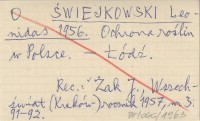 O ŚWIEJKOWSKI Leo-
nidas 1956. Ochrona roślin
w Polsce. — Łódź.
Rec.: Żak J., Wszech-
świat (Kraków) rocznik 1957, nr 3:
91-92.